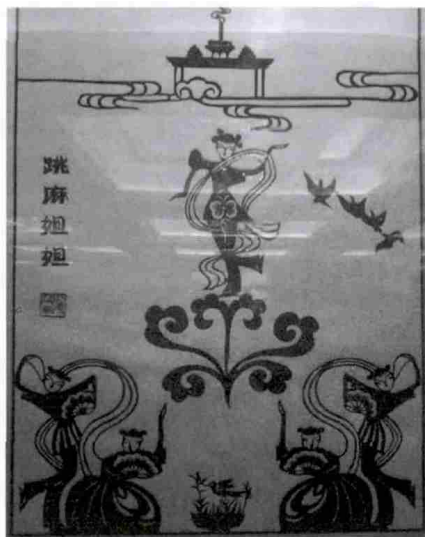 跳麻姐姐